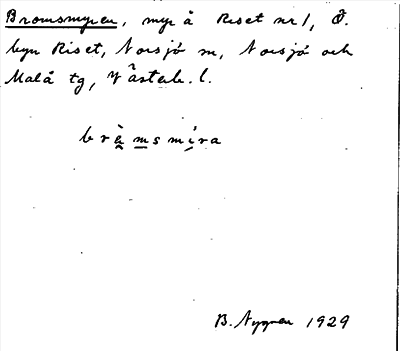 Bromsmyren, myr å Riset nr 1, Ö.
byn Riset, Norsjö sn, Norsjö och
Malå tg, Västerb. l.
brèmsmíra
B. Nygren 1929